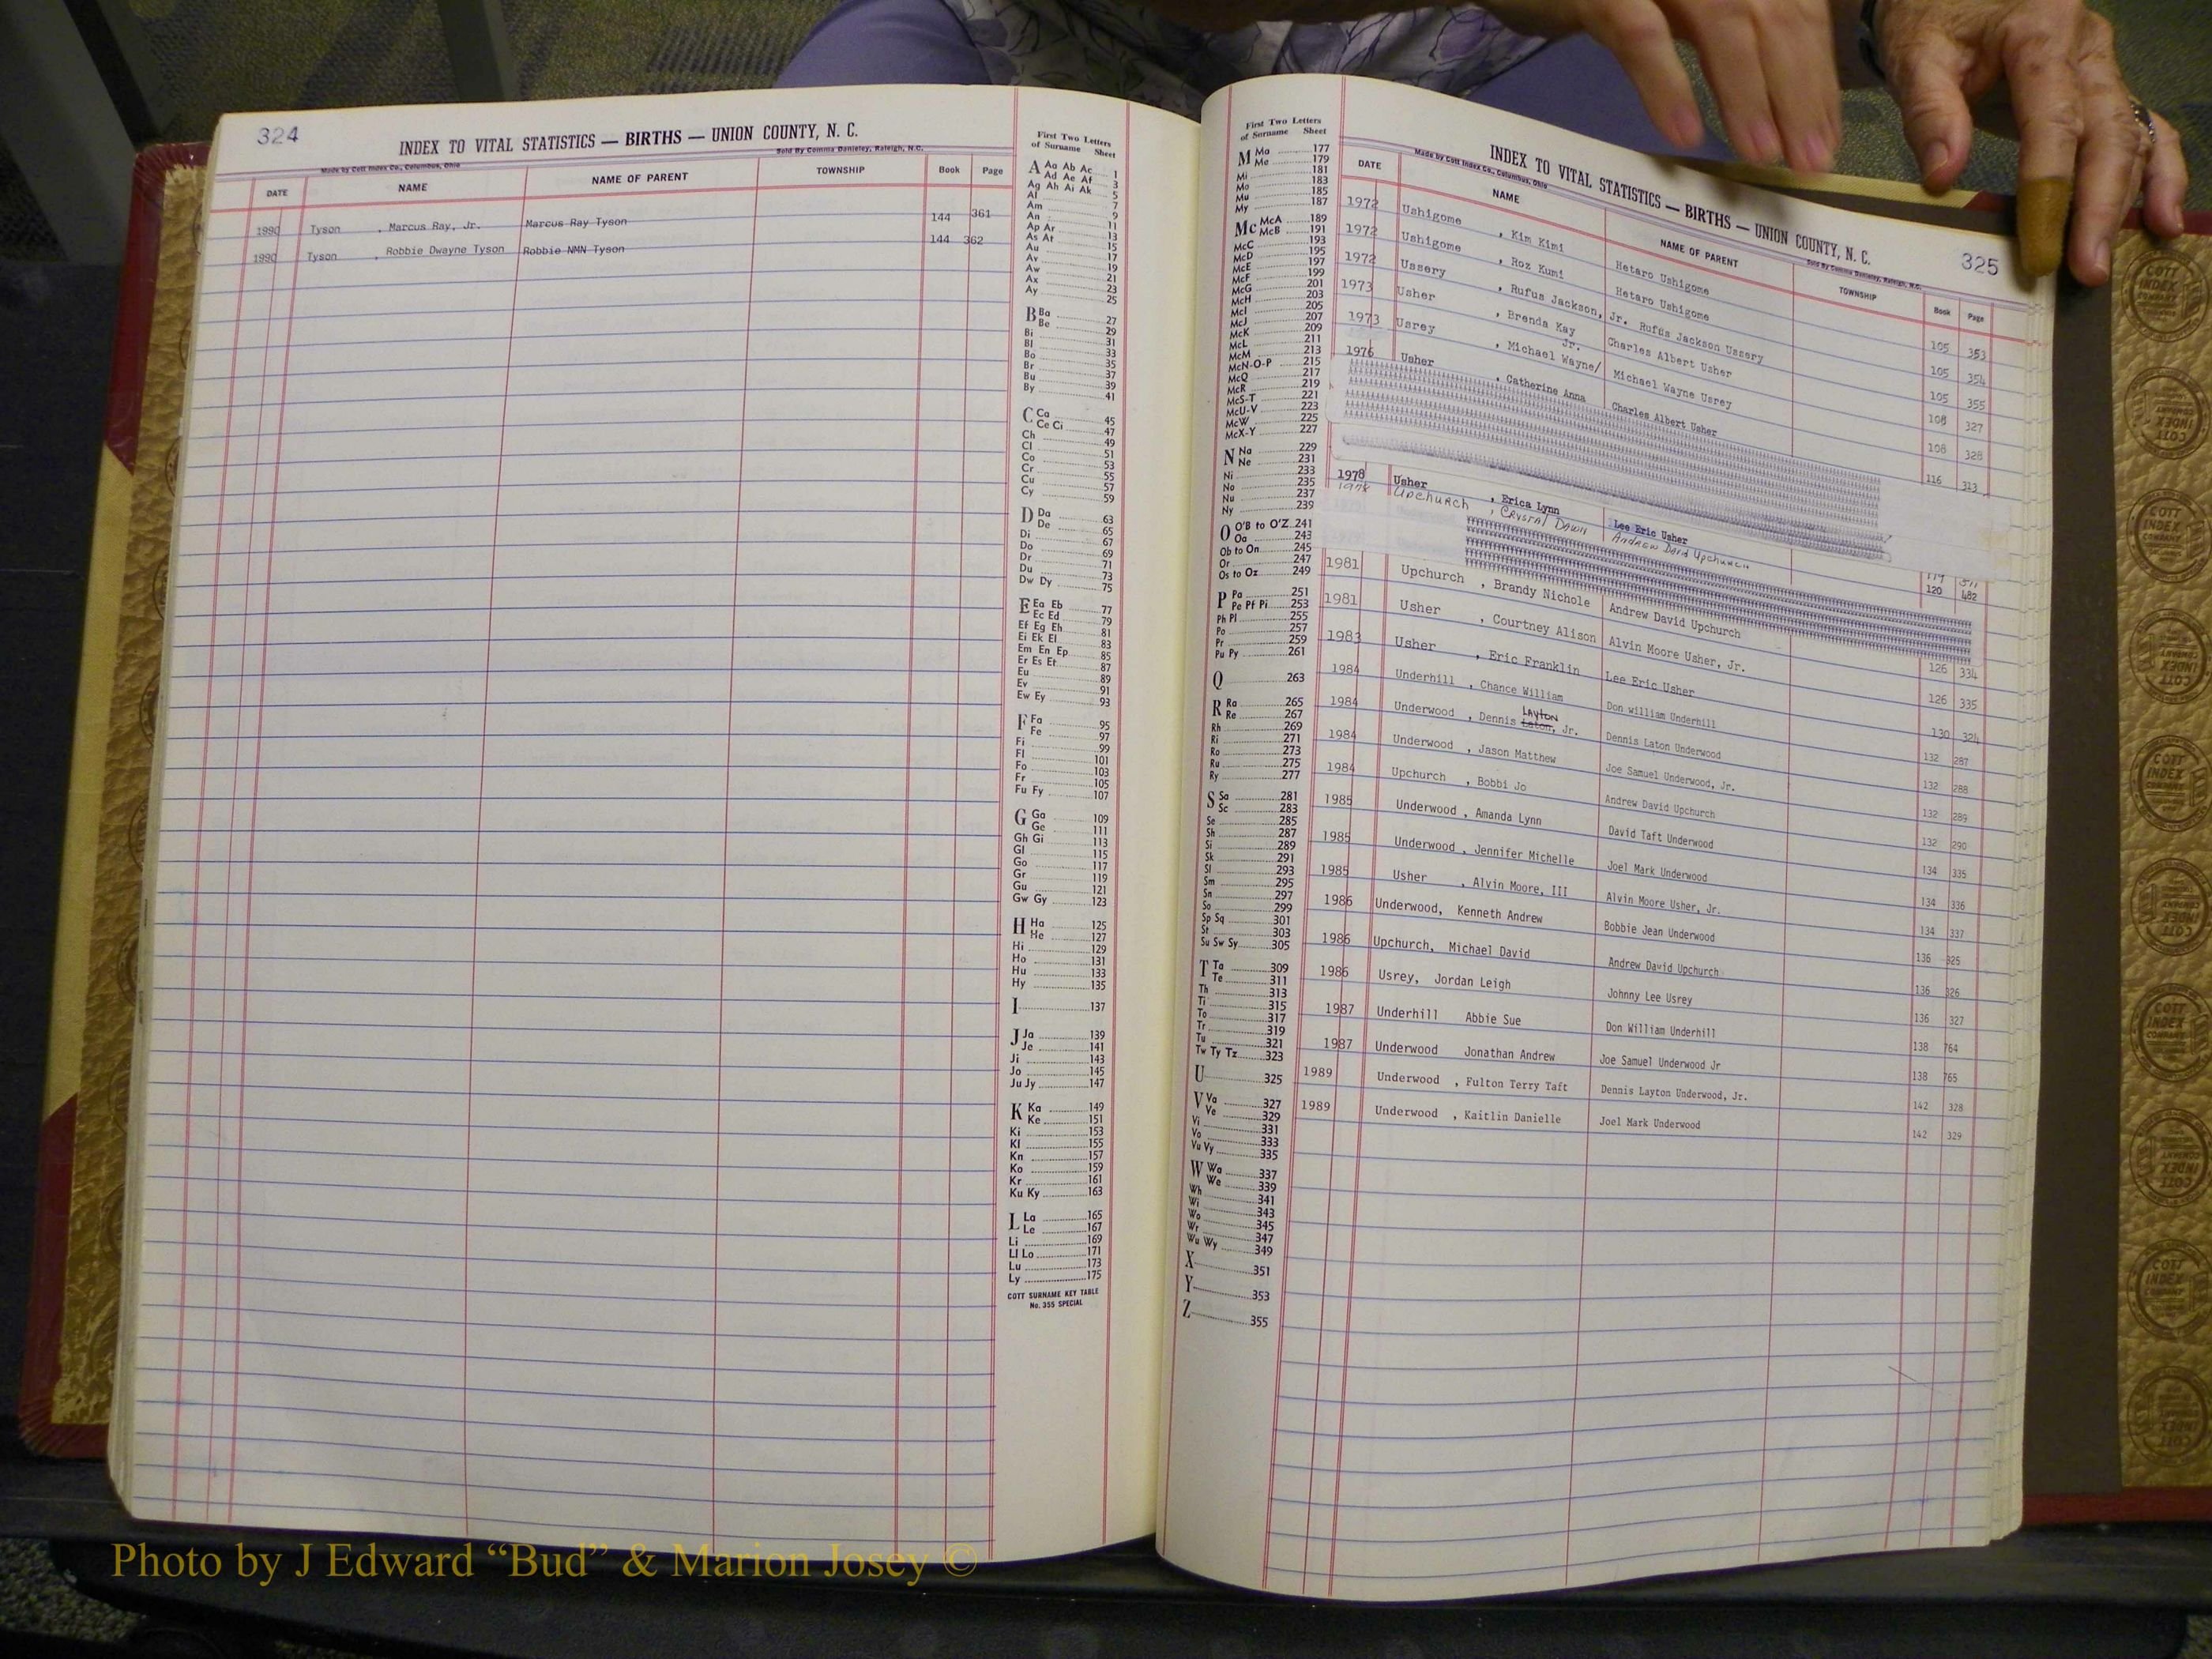 324
INDEX TO VITAL STATISTICS — BIRTHS — UNION COUNTY, N. C.
Made by Cott Index Co., Columbus, Ohio Sold By Comma Danieley, Raleigh, N.C.
DATE NAME NAME OF PARENT TOWNSHIP Book Page
1990 Tyson , Marcus Ray, Jr. Marcus Ray Tyson 144 361
1990 Tyson , Robbie Dwayne Tyson Robbie NMN Tyson 144 362
First Two Letters
of Surname Sheet
A Aa Ab Ac 1
Ad Ae Af 3
Ag Ah Ai Ak 5
Al 7
Am 9
An 11
Ap Ar 13
As At 15
Au 17
Av 19
Aw 21
Ax 23
Ay 25
B Ba 27
Be 29
Bi 31
Bl 33
Bo 35
Br 37
Bu 39
By 41
C Ca 45
Ce Ci 47
Ch 49
Cl 51
Co 53
Cr 55
Cu 57
Cy 59
D Da 63
De 65
Di 67
Do 69
Dr 71
Du 73
Dw Dy 75
E Ea Eb 77
Ec Ed 79
Ef Eg Eh 81
Ei Ek El 83
Em En Ep 85
Er Es Et 87
Eu 89
Ev 91
Ew Ey 93
F Fa 95
Fe 97
Fi 99
Fl 101
Fo 103
Fr 105
Fu Fy 107
G Ga 109
Ge 111
Gh Gi 113
Gl 115
Go 117
Gr 119
Gu 121
Gw Gy 123
H Ha 125
He 127
Hi 129
Ho 131
Hu 133
Hy 135
I 137
J Ja 139
Je 141
Ji 143
Jo 145
Ju Jy 147
K Ka 149
Ke 151
Ki 153
Kl 155
Kn 157
Ko 159
Kr 161
Ku Ky 163
L La 165
Le 167
Li 169
Ll Lo 171
Lu 173
Ly 175
COTT SURNAME KEY TABLE
No. 355 SPECIAL
First Two Letters
of Surname Sheet
M Ma 177
Me 179
Mi 181
Mo 183
Mu 185
My 187
Mc McA 189
McB 191
McC 193
McD 195
McE 197
McF 199
McG 201
McH 203
McI 205
McJ 207
McK 209
McL 211
McM 213
McN-O-P 215
McQ 217
McR 219
McS-T 221
McU-V 223
McW 225
McX-Y 227
N Na 229
Ne 231
Ni 233
No 235
Nu 237
Ny 239
O O'B to O'Z 241
Oa 243
Ob to On 245
Or 247
Os to Oz 249
P Pa 251
Pe Pf Pi 253
Ph Pl 255
Po 257
Pr 259
Pu Py 261
Q 263
R Ra 265
Re 267
Rh 269
Ri 271
Ro 273
Ru 275
Ry 277
S Sa 281
Sc 283
Se 285
Sh 287
Si 289
Sk 291
Sl 293
Sm 295
Sn 297
So 299
Sp Sq 301
St 303
Su Sw Sy 305
T Ta 309
Te 311
Th 313
Ti 315
To 317
Tr 319
Tu 321
Tw Ty Tz 323
U 325
V Va 327
Ve 329
Vi 331
Vo 333
Vu Vy 335
W Wa 337
We 339
Wh 341
Wi 343
Wo 345
Wr 347
Wu Wy 349
X 351
Y 353
Z 355
INDEX TO VITAL STATISTICS — BIRTHS — UNION COUNTY, N. C.
325
Made by Cott Index Co., Columbus, Ohio Sold By Comma Danieley, Raleigh, N.C.
DATE NAME NAME OF PARENT TOWNSHIP Book Page
1972 Ushigome , Kim Kimi Hetaro Ushigome 105 353
1972 Ushigome , Roz Kumi Hetaro Ushigome 105 354
1972 Ussery , Rufus Jackson, Jr. Rufus Jackson Ussery 105 355
1973 Usher , Brenda Kay Charles Albert Usher 108 327
1973 Usrey , Michael Wayne/ Jr. Michael Wayne Usrey 108 328
1976 Usher , Catherine Anna Charles Albert Usher 116 313
1978 Usher , Erica Lynn Lee Eric Usher 119
1978 Upchurch , Crystal Dawn Andrew David Upchurch 120 482
1981 Upchurch , Brandy Nichole Andrew David Upchurch 126 334
1981 Usher , Courtney Alison Alvin Moore Usher, Jr. 126 335
1983 Usher , Eric Franklin Lee Eric Usher 130 324
1984 Underhill , Chance William Don william Underhill 132 287
1984 Underwood , Dennis Laton, LAYTON Jr. Dennis Laton Underwood 132 288
1984 Underwood , Jason Matthew Joe Samuel Underwood, Jr. 132 289
1984 Upchurch , Bobbi Jo Andrew David Upchurch 132 290
1985 Underwood , Amanda Lynn David Taft Underwood 134 335
1985 Underwood , Jennifer Michelle Joel Mark Underwood 134 336
1985 Usher , Alvin Moore, III Alvin Moore Usher, Jr. 134 337
1986 Underwood, Kenneth Andrew Bobbie Jean Underwood 136 325
1986 Upchurch, Michael David Andrew David Upchurch 136 326
1986 Usrey, Jordan Leigh Johnny Lee Usrey 136 327
1987 Underhill Abbie Sue Don William Underhill 138 764
1987 Underwood Jonathan Andrew Joe Samuel Underwood Jr 138 765
1989 Underwood , Fulton Terry Taft Dennis Layton Underwood, Jr. 142 328
1989 Underwood , Kaitlin Danielle Joel Mark Underwood 142 329
Photo by J Edward “Bud” & Marion Josey ©